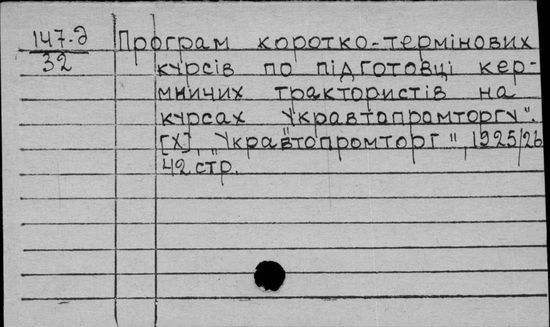 147.д Програм коротко-термінових
32 курсів по підготовці кер-
мничих трактористів на
курсах Укравтопромторгу".
[Х], „Укравтопромторг", 1925/26
42 стр.